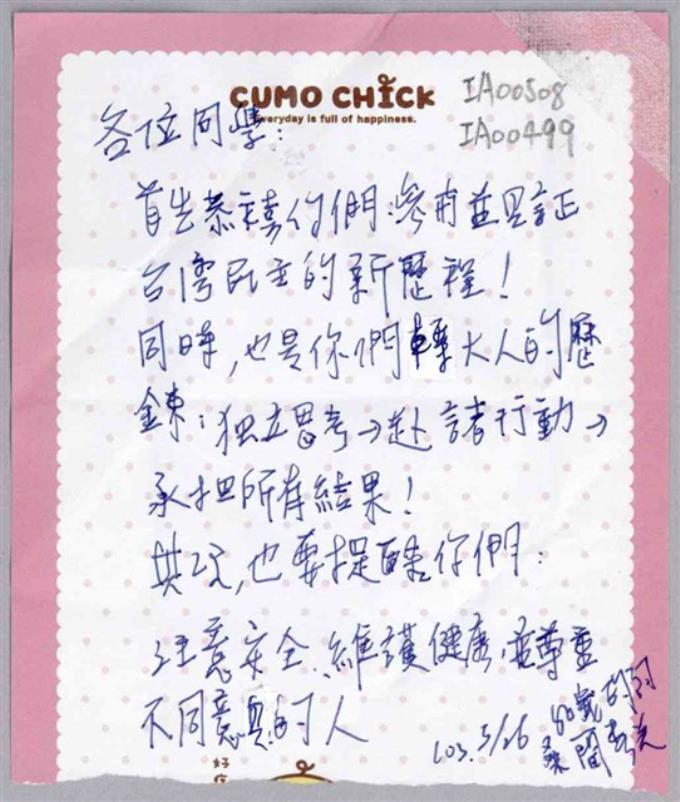 CUMO CHICK
Everyday is full of happiness.
IA00508
IA00499
各位同學:
首先恭禧你們:參與並見証
台湾民主的新歷程!
同時,也是你們轉大人的歷
鍊:独立思考→赴諸行動→
承担所有結果!
其次,也要提醒你們:
注意安全、維護健康,並尊重
不同意見的人
103. 3/26
80歲的
好